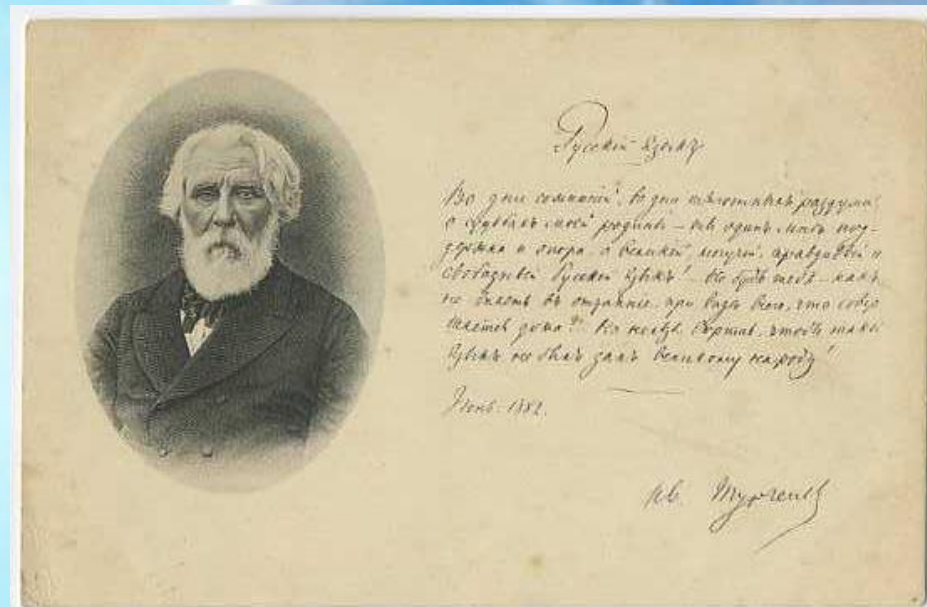 Русскій языкъ
Во дни сомнѣній, во дни тягостныхъ раздумій
о судьбахъ моей родины – ты одинъ мнѣ под-
держка и опора, о великій, могучій, правдивый и
свободный Русскій языкъ! – Не будь тебя – какъ
не впасть въ отчаяніе, при видѣ всего, что совер-
шается дома? Но нельзя вѣрить, чтобы такой
языкъ не былъ данъ великому народу!
Іюнь 1882.
Ив. Тургеневъ